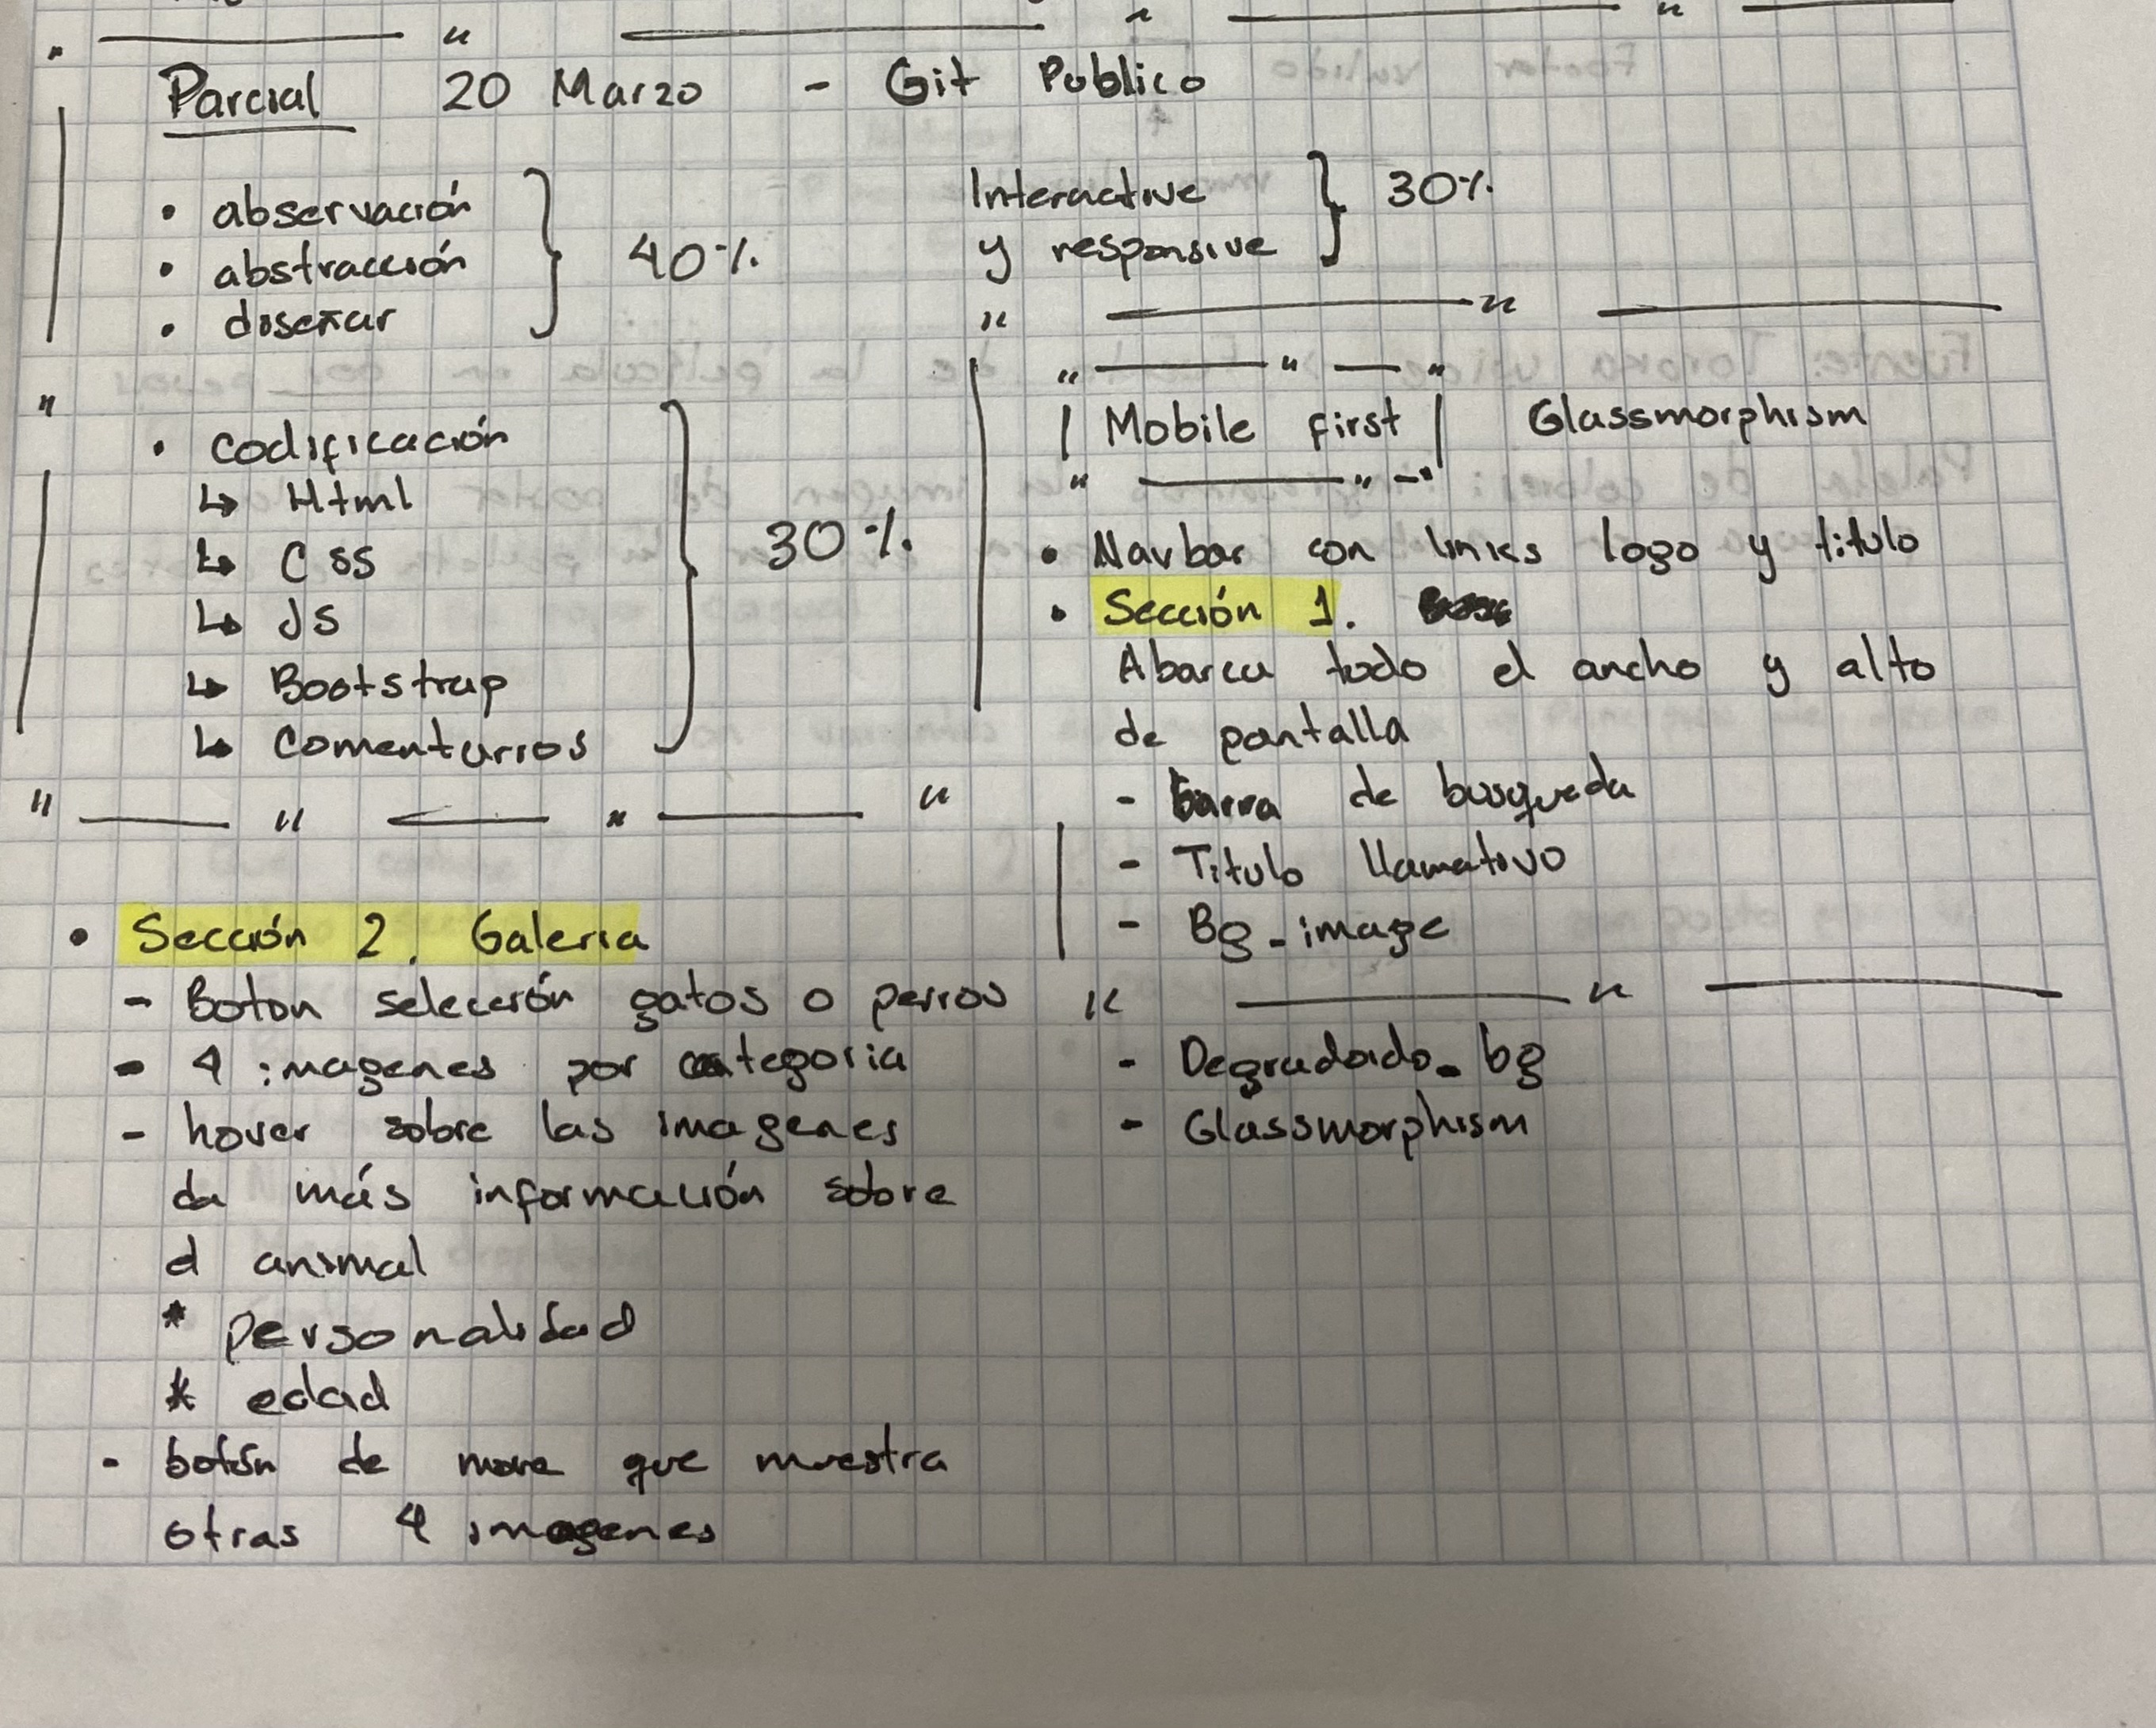 Parcial 20 Marzo - Git Publico
• observación
• abstracción
• diseñar
40%
Interactive
y responsive
30%
• codificación
↳ Html
↳ Css
↳ JS
↳ Bootstrap
↳ Comentarrios
30%
Mobile first
Glassmorphism
• Navbar con links logo y titulo
• Sección 1.
Abarca todo el ancho y alto
de pantalla
- barra de busqueda
- Titulo llamativo
- Bg_image
- Degradado_bg
- Glassmorphism
• Sección 2. Galeria
- Boton selección gatos o perros
- 4 imagenes por categoria
- hover sobre las imagenes
da más información sobre
el animal
* personalidad
* edad
- botón de more que muestra
otras 4 imagenes